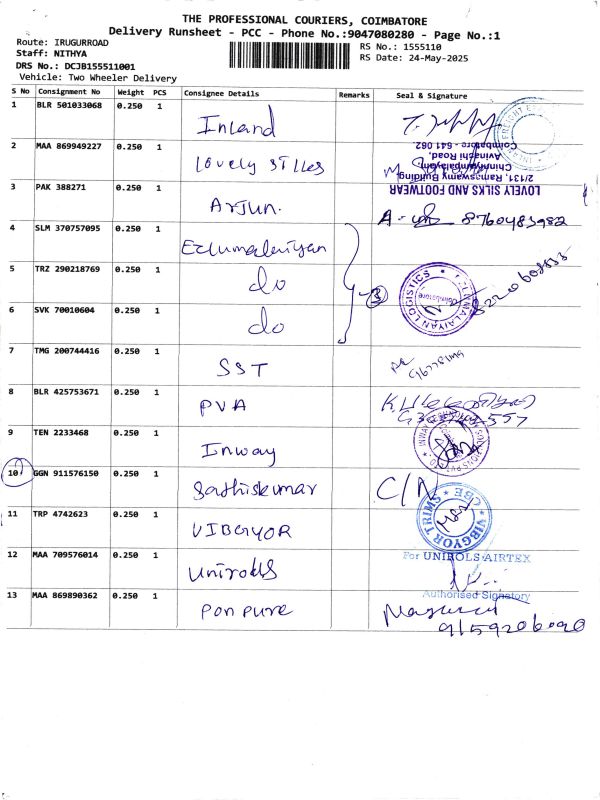 THE PROFESSIONAL COURIERS, COIMBATORE
Delivery Runsheet - PCC - Phone No.:9047080280 - Page No.:1
Route: IRUGURROAD
Staff: NITHYA
DRS No.: DCJB155511001
Vehicle: Two Wheeler Delivery
RS No.: 1555110
RS Date: 24-May-2025
S No Consignment No Weight PCS Consignee Details Remarks Seal & Signature
1 BLR 501033068 0.250 1 Inland
2 MAA 869949227 0.250 1 Lovely Silks
LOVELY SILKS AND FOOTWEAR
2/131, Ramaswamy Building,
Chinniyampalayam,
Avinashi Road,
Coimbatore - 641 062.
3 PAK 388271 0.250 1 Arjun. 8760483982
4 SLM 370757095 0.250 1 Ezhumalaiyan
5 TRZ 290218769 0.250 1 do
6 SVK 70010604 0.250 1 do
3
MALAIYAN LOGISTICS
Coimbatore
7 TMG 200744416 0.250 1 SST
8 BLR 425753671 0.250 1 PVA
9 TEN 2233468 0.250 1 Inway
10 GGN 911576150 0.250 1 Sathiskumar C/N
11 TRP 4742623 0.250 1 VIBGYOR
VIBGYOR TRIMS CBE
12 MAA 709576014 0.250 1 Unirolls
For UNIROLS AIRTEX
Authorised Signatory
13 MAA 869890362 0.250 1 Pon pure
9159206090